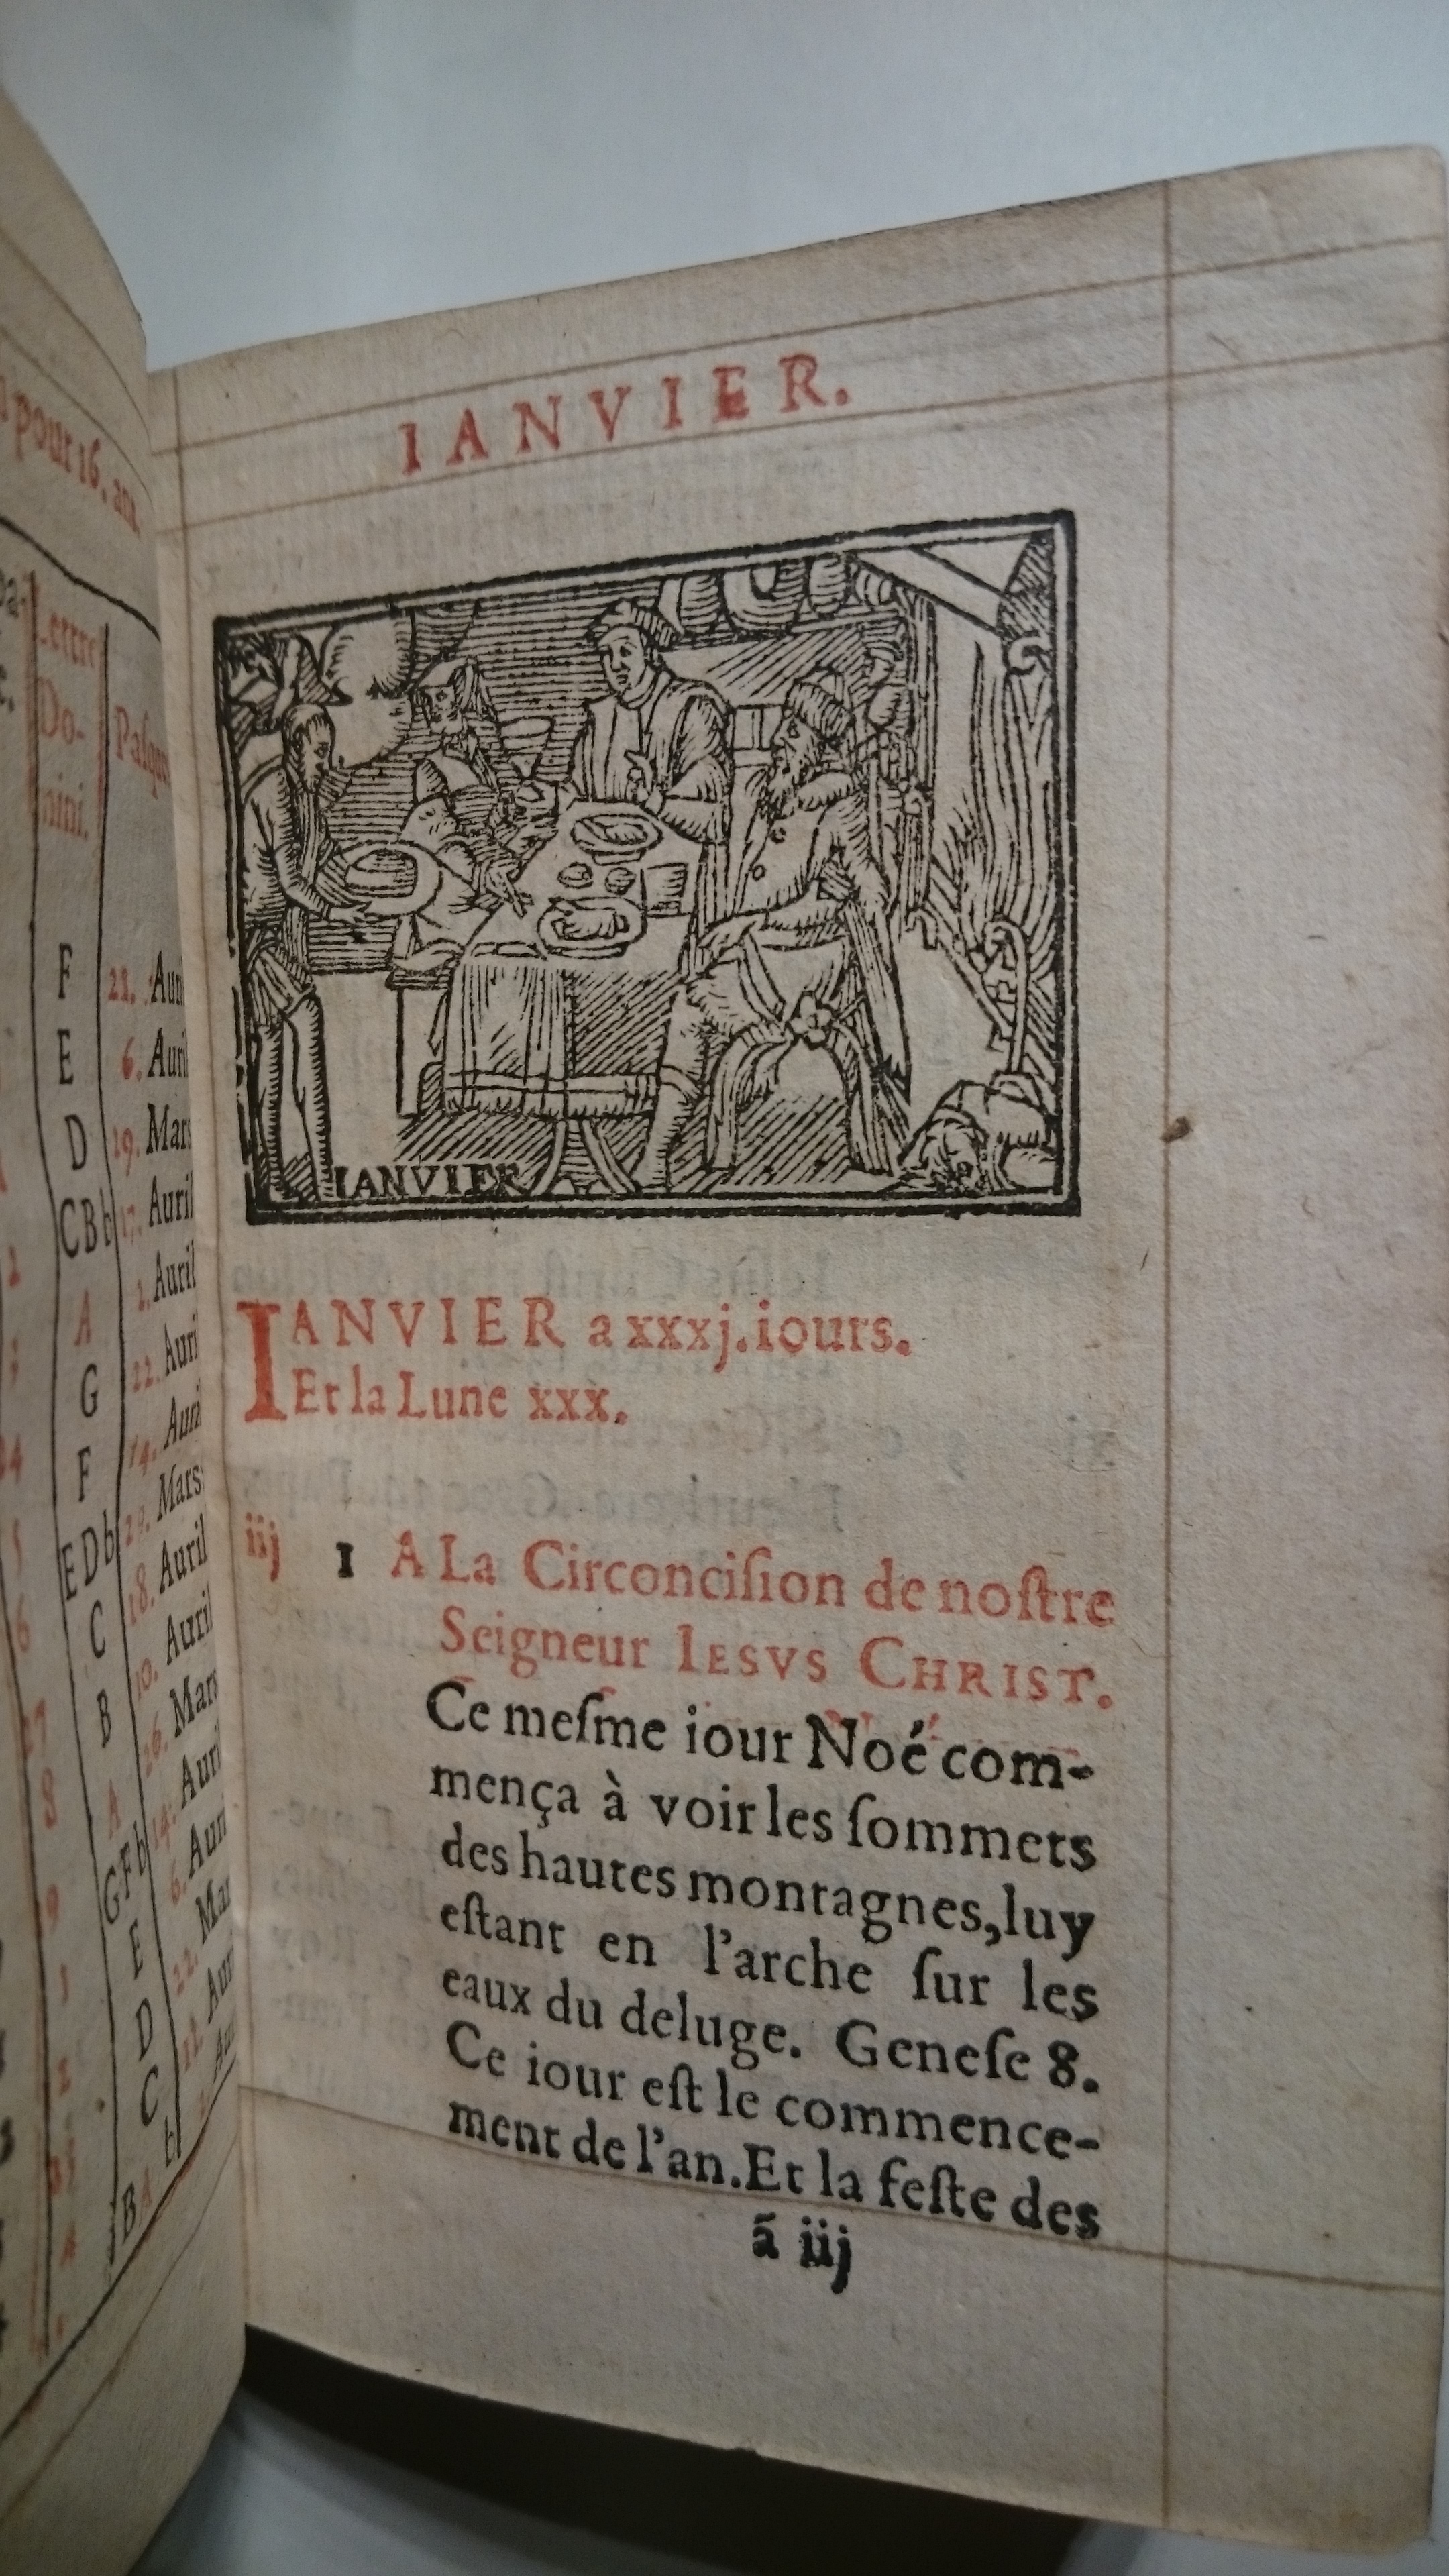 pour 16. ans
Lettre
Do-
mini.
Pasque
F 21. Auri
E 6. Auri
D 19. Mars
CBb 17. Auril
A 2. Auril
G 22. Auri
F 14. Auri
29. Mars
EDb 18. Auril
C 10. Auril
B 26. Mars
A 14. Auri
GFb 6. Auri
E 22. Mar
D 11. Aur
C
b
BA
IANVIER.
IANVIER
IANVIER a xxxj. iours.
Et la Lune xxx.
iij 1 A La Circonciſion de noſtre
Seigneur IESVS CHRIST.
Ce meſme iour Noé com-
mença à voir les ſommets
des hautes montagnes, luy
eſtant en l'arche ſur les
eaux du deluge. Geneſe 8.
Ce iour eſt le commence-
ment de l'an. Et la feſte des
ã iij